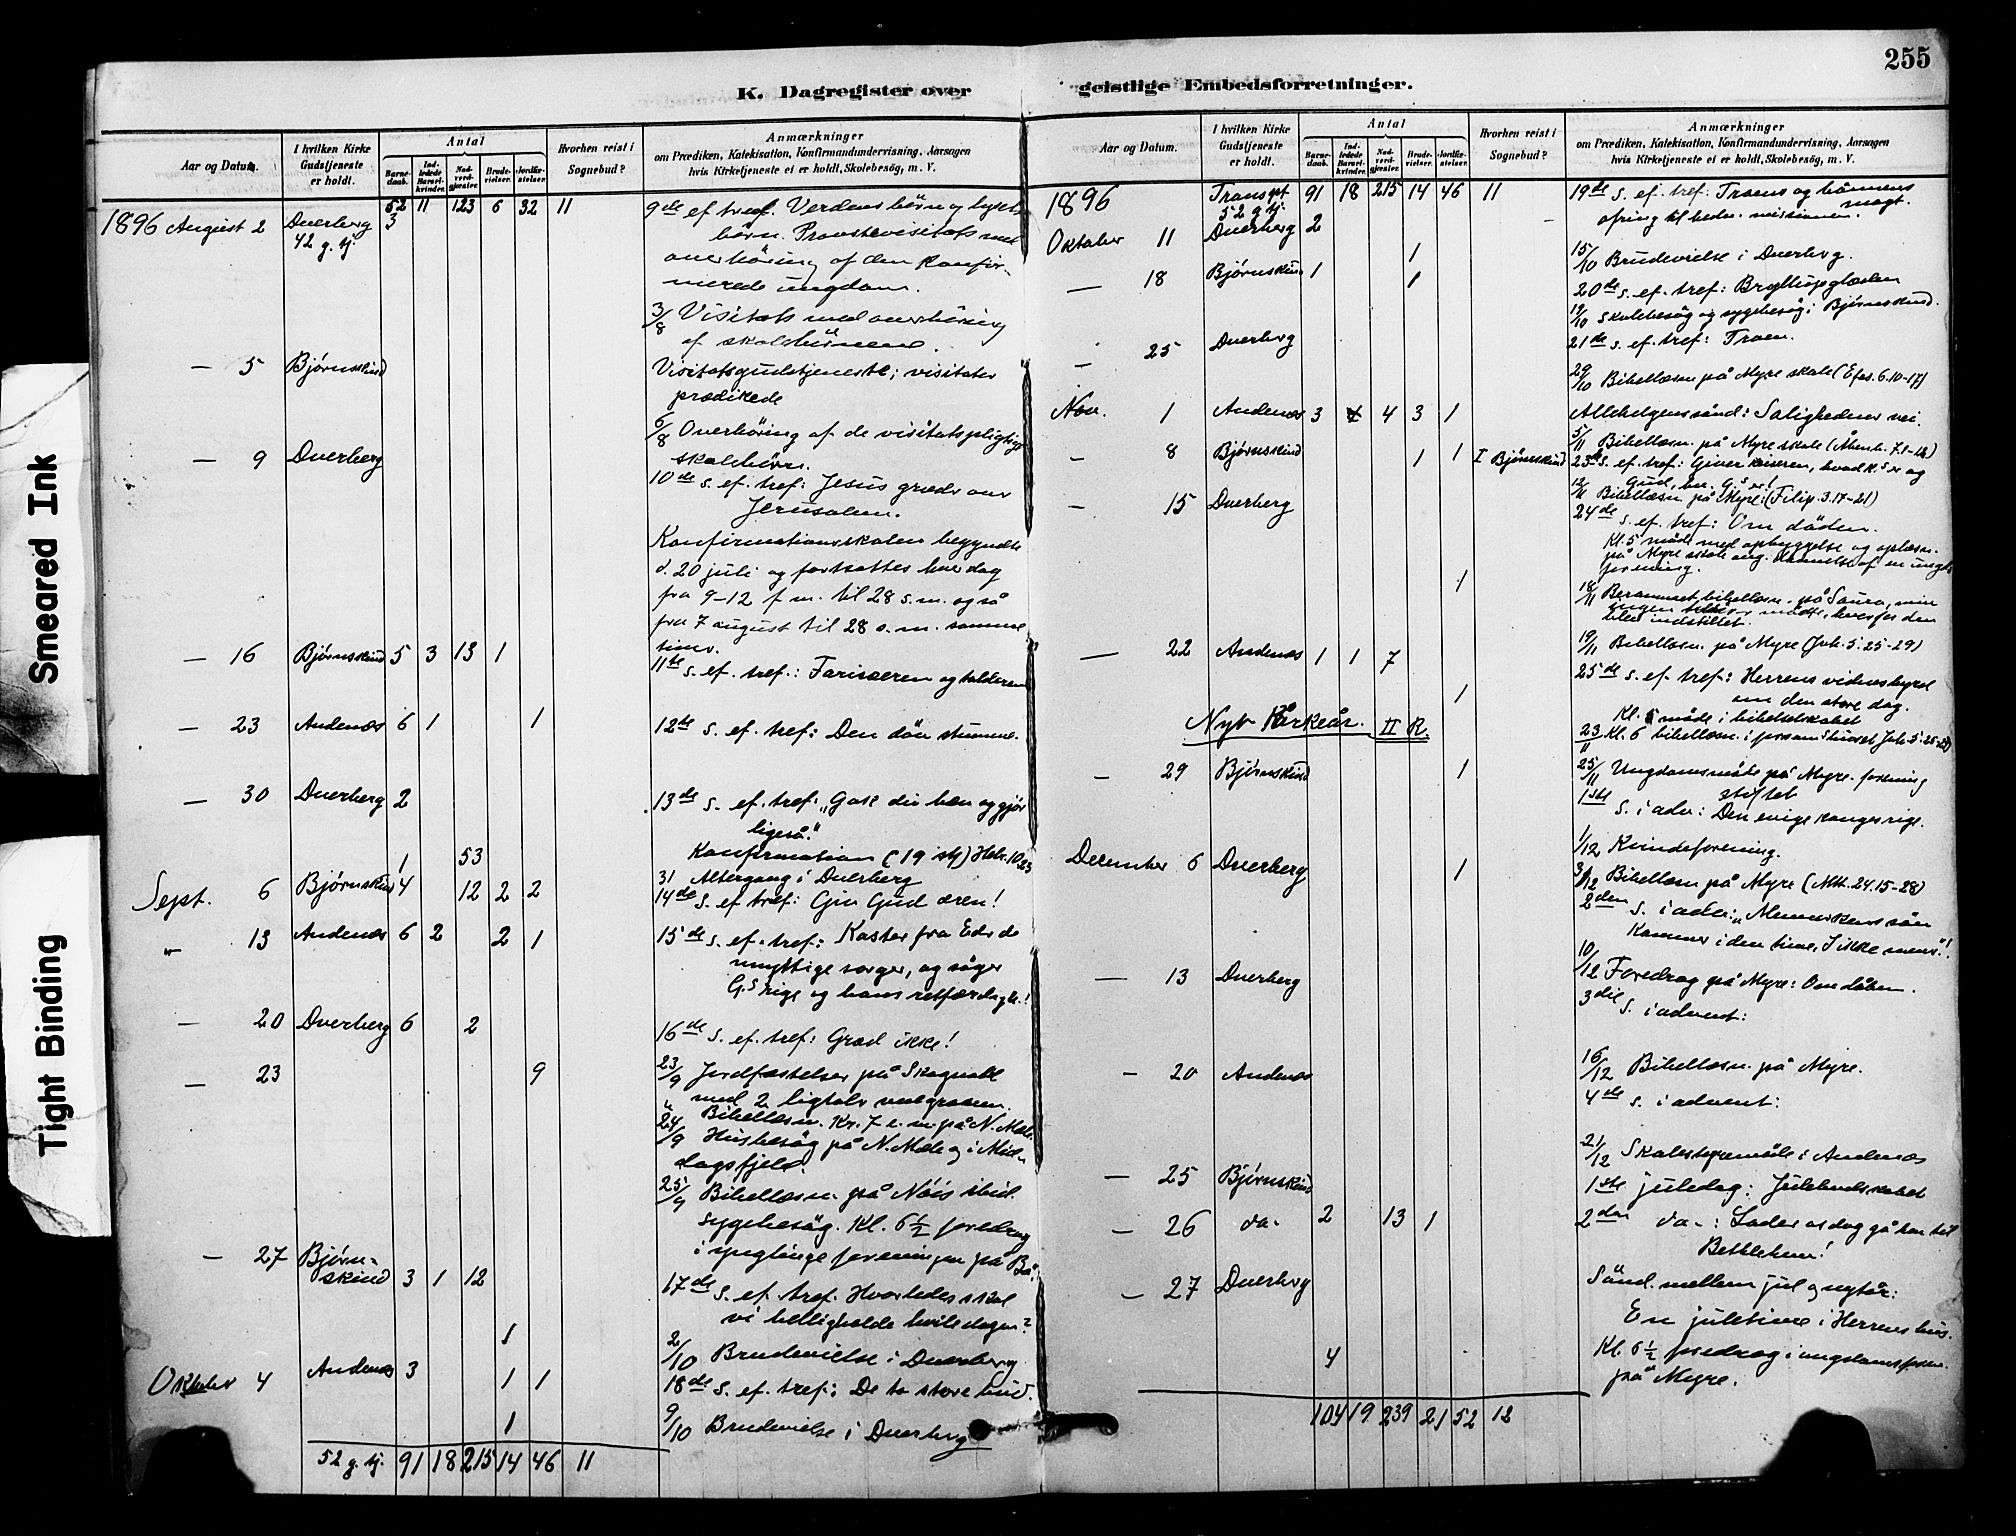 255
K. Dagregister over geistlige Embedsforretninger.
Smeared Ink
Tight Binding
Aar og Datum.
I hvilken Kirke Gudstjeneste er holdt.
Antal
Barne-daab.
Ind-ledede Barsel-kvinder.
Nad-verd-gjester.
Brude-vielser.
Jordfæ-stelser.
Hvorhen reist i Sognebud?
Anmærkninger
om Prædiken, Katekisation, Konfirmandundervisning, Aarsagen
hvis Kirketjeneste ei er holdt, Skolebesög, m. V.
52 11 123 6 32 11
1896 August 2 Dverberg 3 9de ef. tref. Verdens börn og lysets
42 g. tj. börn. Provstevisitats med
overhöring af den konfir-
merede ungdom.
3/8 Visitats med overhöring
af skolebörnene.
— 5 Bjørnskind Visitatsgudstjeneste; visitator
prædikede
6/8 Overhöring af de visitatspligtige
skolebörn.
— 9 Dverberg 10de s. ef. tref: Jesus græder over
Jerusalem.
Konfirmationsskolen begyndte
d. 20 juli og fortsattes hver dag
fra 9-12 f. m. til 28 s. m. også
fra 7 august til 28 s. m. samme
timer.
— 16 Bjørnskind 5 3 13 1 11te s. ef. tref.: Farisæeren og tolderen
— 23 Andenæs 6 1 1 12te s. ef. tref: Den döv stumme.
— 30 Dverberg 2 13de s. ef. tref: "Gak du hen og gjör
ligeså."
Konfirmation (19 stk) Hebr. 10.23
1 53 31 Altergang i Dverberg
Sept. 6 Bjørnskind 4 12 2 2 14de s. ef tref: Giv Gud æren!
" 13 Andenæs 6 2 2 1 15de s. ef. tref: Kaster fra Eder de
unyttige sorger, og söger
G.s rige og hans retfærdighed!
— 20 Dverberg 6 2 16de s. ef. tref: Græd ikke!
— 23 9 23/9 Jordfæstelser på Skogvoll
med 2 ligtaler ved graven.
" Bibellæsn. Kl. 7 e. m. på N. Mæle.
24/9 Husbesög på N. Mæle og i Mid-
dagsfjeld.
25/9 Bibellæsn. på Nöis
sygebesög. Kl. 6½ foredrag
i ynglingeforeningen på Bö.
— 27 Bjørn-
skind 3 1 12 17de s. ef. tref. Hvorledes skal
vi helligholde hviledagen?
1 2/10 Brudevielse i Dverberg
Oktober 4 Andenæs 3 1 1 18de s. ef. tref.: De to store bud.
1 9/10 Brudevielse i Dverberg
52 g. tj. 91 18 215 14 46 11
Aar og Datum.
I hvilken Kirke Gudstjeneste er holdt.
Antal
Barne-daab.
Ind-ledede Barsel-kvinder.
Nad-verd-gjester.
Brude-vielser.
Jordfæ-stelser.
Hvorhen reist i Sognebud?
Anmærkninger
om Prædiken, Katekisation, Konfirmandundervisning, Aarsagen
hvis Kirketjeneste ei er holdt, Skolebesög, m. V.
1896 Transpt 91 18 215 14 46 11
52 g. tj.
Oktober 11 Dverberg 2 19de s. ef. tref: Troens og bönnens magt.
ofring til hedn. missionen.
1 15/10 Brudevielse i Dverberg.
— 18 Bjørnskind 1 1 20de s. ef. tref: Bryllupsglæden
19/10 Skolebesög og sygebesög i Bjørnskind.
— 25 Dverberg 21de s. ef. tref: Troen.
29/10 Bibellæsn på Myre skole (Efes. 6.10-17)
Nov. 1 Andenæs 3 4 3 1 Allehelgenssönd: Salighedens vei.
5/11 Bibellæsn. på Myre skole (Åbenb. 7.1-12)
— 8 Bjørnskind 1 1 I Bjørnskind 23de s. ef. tref: Giver keiseren, hvad k.s er og
Gud, hv. G.s er!
12/11 Bibellæsn på Myre: (Filip. 3.17-21)
— 15 Dverberg 24de s. ef. tref: Om döden.
Kl. 5 möde med opbyggelse og oplæsn.
på Myre skole ang. dannelse af en ungd.
forening.
1 18/11 Berammet bibellæsn. på Saura, men
ingen tilhörer mödte, hvorfor den
blev indstillet.
19/11 Bibellæsn. på Myre (Joh. 5. 25-29)
— 22 Andenæs 1 1 7 25de s. ef. tref: Herrens vidnesbyrd
1 om den store dag.
Kl. 5 möde i bibelselskabet
Nyt Kirkeår. II R.
23/11 Kl. 6 bibellæsn. i
25/11 Ungdomsmöde på Myre. forening
stiftet
— 29 Bjørnskind 1 1ste s. i adv: Den evige konges rige.
1/12 Kvindeforening.
December 6 Dverberg 1 3/12 Bibellæsn på Myre (Mtt. 24.15-28)
2den s. i adv: "Menneskens sön
kommer i den time, I ikke mener"!
10/12 Foredrag på Myre: Om dåben.
— 13 Dverberg 3die s. i advent:
16/12 Bibellæsn. på Myre.
— 20 Andenæs 4de s. i advent:
21/12 Skolestyremöde i Andenæs
— 25 Bjørnskind 1ste juledag: Julebudskabet
— 26 do- 2 13 1 2den do-: Lader os dog gå hen til
Bethlehem!
— 27 Dverberg Sönd. mellem jul og nytår:
En juletime i Herrens hus.
4 Kl. 6½ foredrag i ungdomsforen.
på Myre.
104 19 239 21 52 12